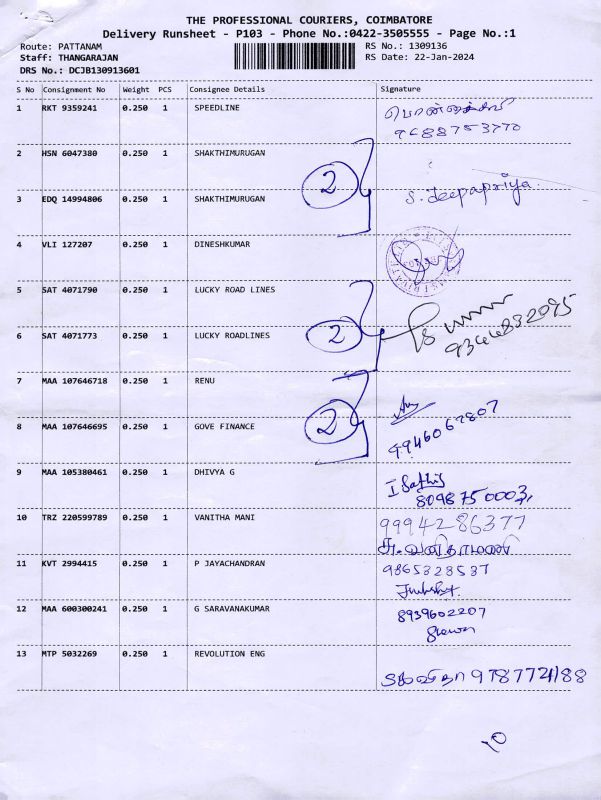 THE PROFESSIONAL COURIERS, COIMBATORE
Delivery Runsheet - P103 - Phone No.:0422-3505555 - Page No.:1
Route: PATTANAM RS No.: 1309136
Staff: THANGARAJAN RS Date: 22-Jan-2024
DRS No.: DCJB130913601
S No Consignment No Weight PCS Consignee Details Signature
1 RKT 9359241 0.250 1 SPEEDLINE
9688753770
2 HSN 6047380 0.250 1 SHAKTHIMURUGAN
2
3 EDQ 14994806 0.250 1 SHAKTHIMURUGAN S. Deepapriya.
4 VLI 127207 0.250 1 DINESHKUMAR
5 SAT 4071790 0.250 1 LUCKY ROAD LINES
6 SAT 4071773 0.250 1 LUCKY ROADLINES 2
9344832095
7 MAA 107646718 0.250 1 RENU
8 MAA 107646695 0.250 1 GOVE FINANCE 2
9946062807
9 MAA 105380461 0.250 1 DHIVYA G
8098750003
10 TRZ 220599789 0.250 1 VANITHA MANI 9994286377
சு.வனிதாமணி
11 KVT 2994415 0.250 1 P JAYACHANDRAN 9865328537
12 MAA 600300241 0.250 1 G SARAVANAKUMAR 8939602207
13 MTP 5032269 0.250 1 REVOLUTION ENG
9787724188
10